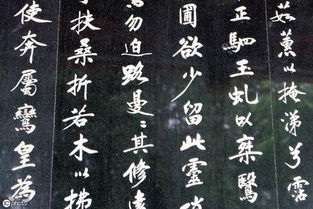 茹蕙以掩涕兮霑
正駟王虬以椉鷖
圃欲少留此靈
勿迫路曼〻其修遠
扶桑折若木以拂
使奔屬鸞皇為